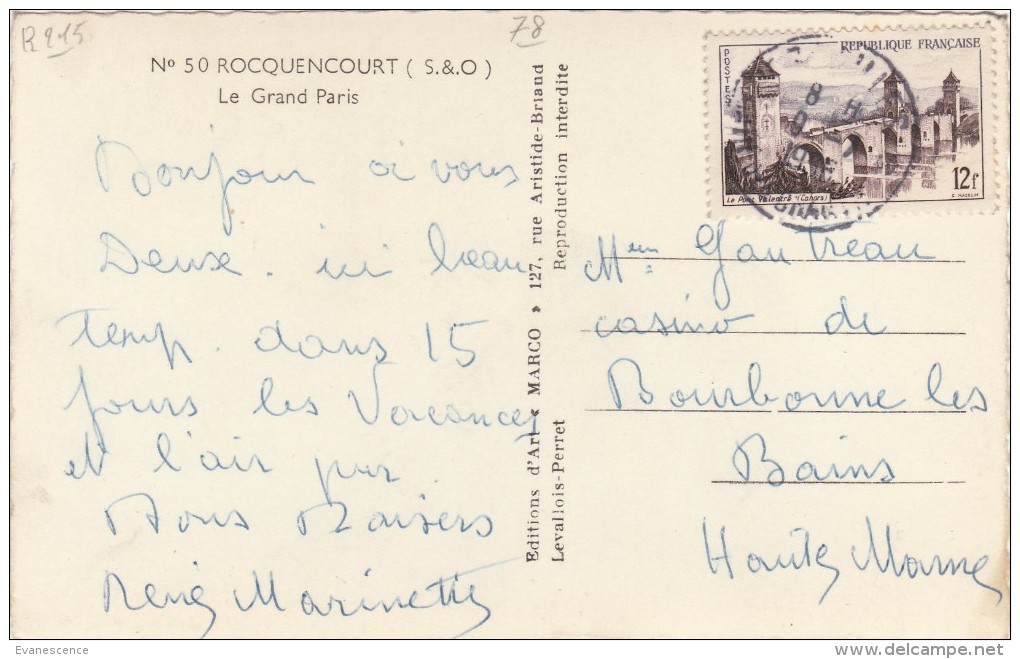 R215
78
Nº 50 ROCQUENCOURT ( S.&.O )
Le Grand Paris
Bonjour à vous
Deux. ici beau
Temp. dans 15
jours les Vacances
et l'air pur.
Bons Baisers
René Marinette
Editions d'Art « MARCO » 127, rue Aristide-Briand
Levallois-Perret Reproduction interdite
POSTES
REPUBLIQUE FRANÇAISE
Le Pont Valentré (Cahors)
12f
Gautreau
casino de
Bourbonne les
Bains
Haute Marne
Evanescence
delcampe.net